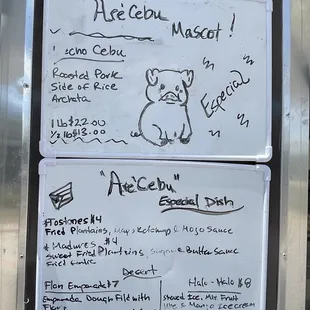 Asé Cebu
Mascot!
Lecho Cebu
Roasted Pork
Side of Rice
Archeta
1 lb $22.00
½ lb $13.00
Especial
"Asé Cebu"
Especial Dish
*Tostones $4
Fried Plantains, Mayo ketchup & Mojo Sauce
*Madures $4
Sweet Fried Plantains, Sugar & Butter Sauce
Fried Garlic
Desart
Flan Empanada $7
Empanada Dough Filled with
Flan
Halo-Halo $8
Shaved Ice, Mix Fruit
Ube & Mango Icecream